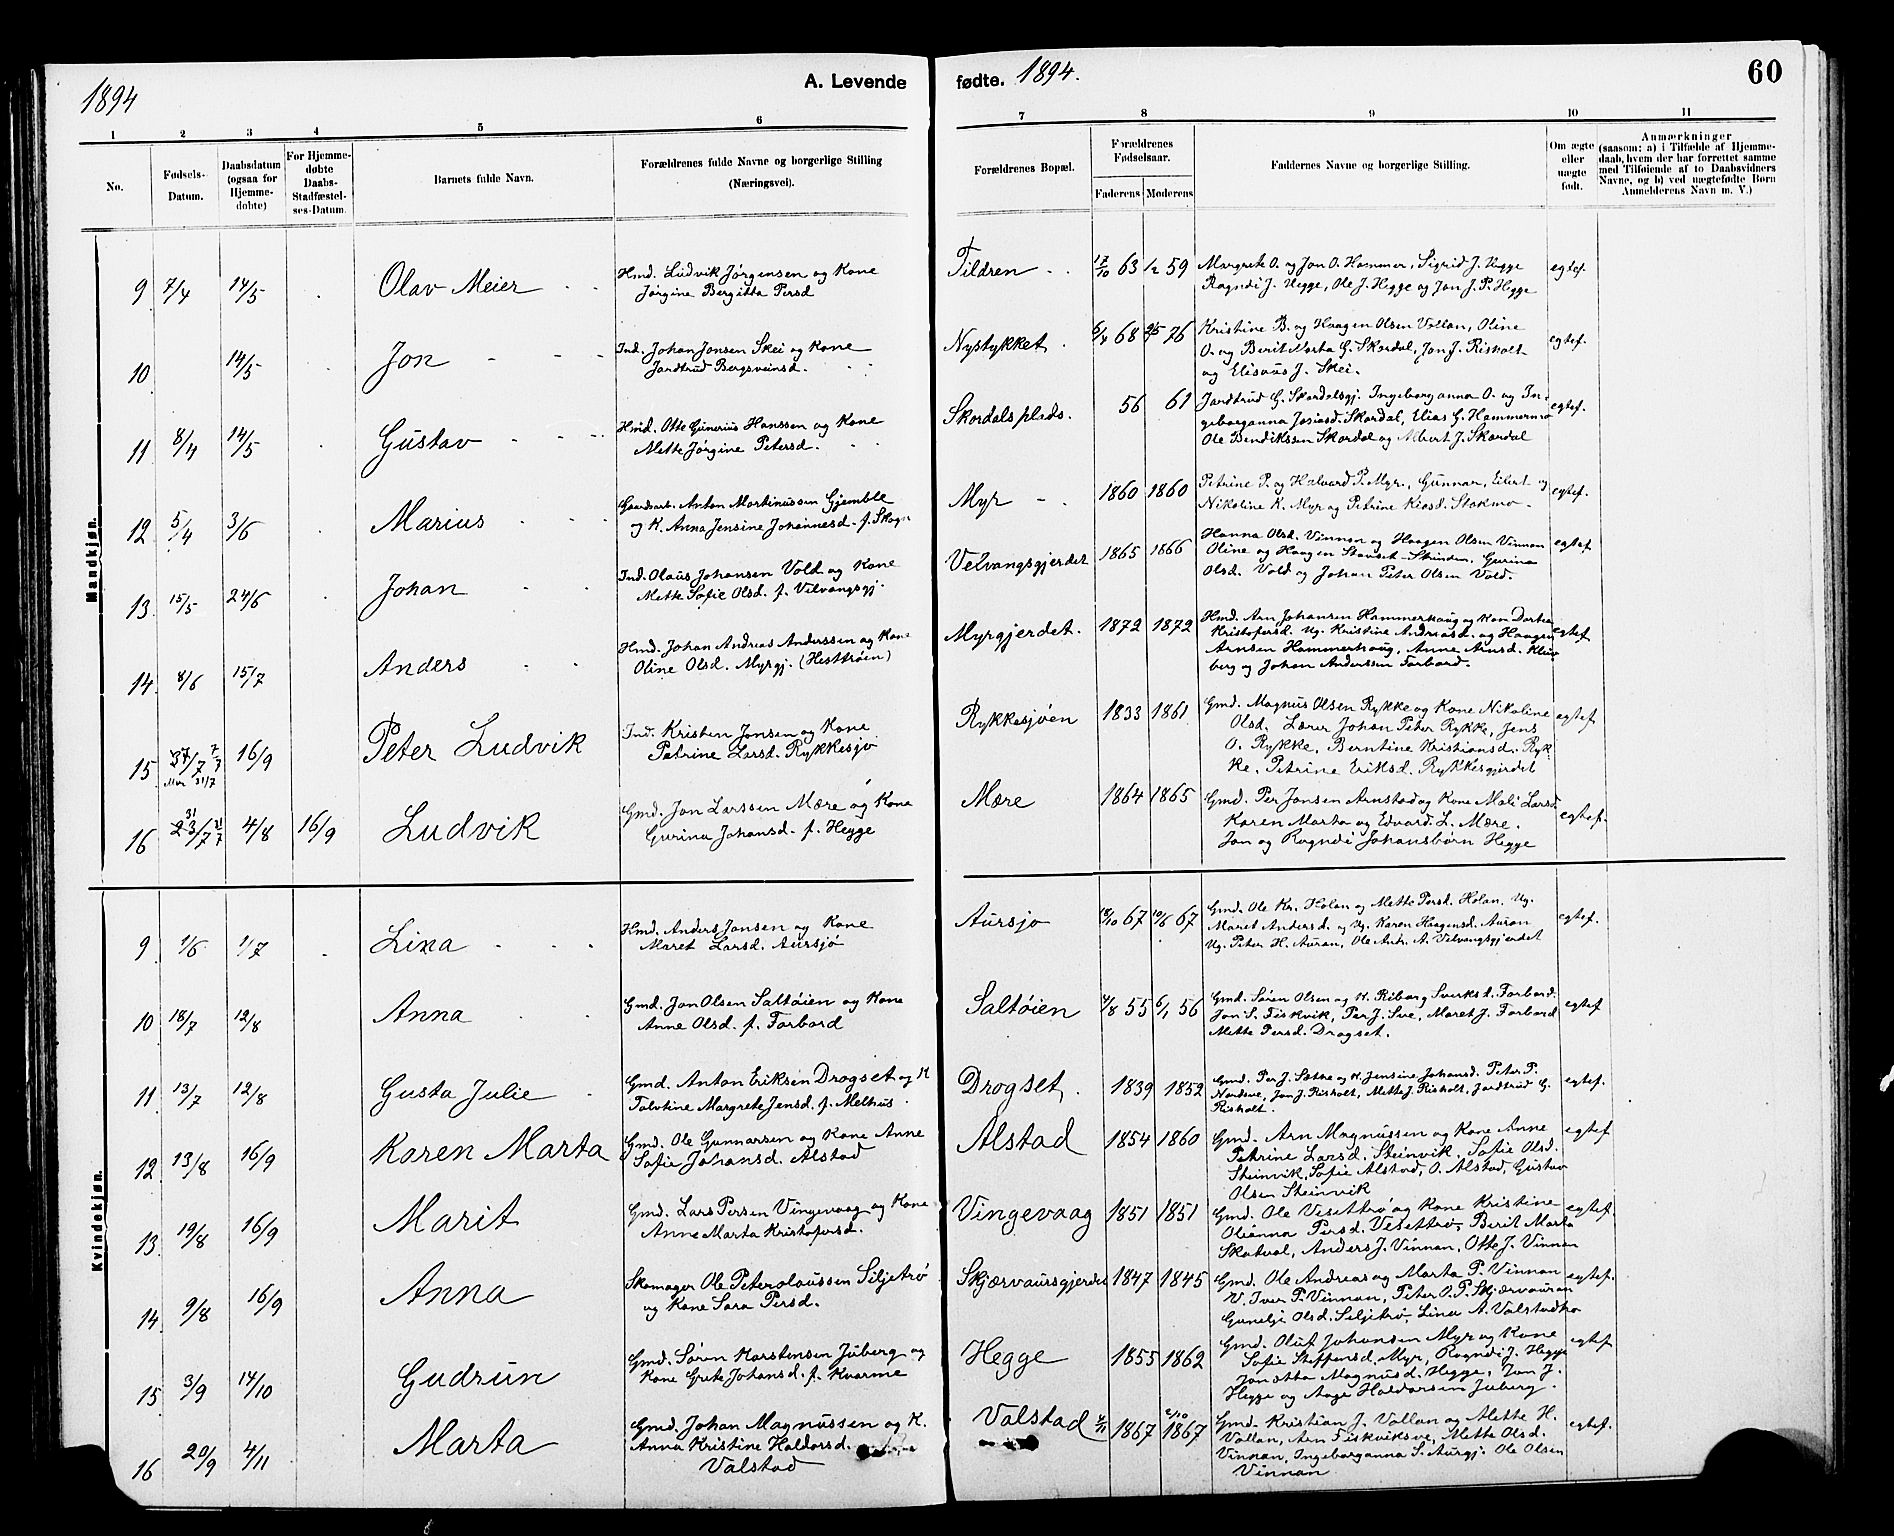 1894
A. Levende
fødte. 1894.
60
1 2 3 4 5 6 7 8 9 10 11
No.
Fødsels-
Datum.
Daabsdatum
(ogsaa for
Hjemme-
døbte)
For Hjemme-
døbte
Daabs-
Stadfæstel-
ses-Datum.
Barnets fulde Navn.
Forældrenes fulde Navne og borgerlige Stilling
(Næringsvei).
Forældrenes Bopæl.
Forældrenes
Fødselsaar.
Faderens Moderens
Faddernes Navne og borgerlige Stilling.
Om ægte
eller
uægte
født.
Anmærkninger
(saasom: a) i Tilfælde af Hjemme-
daab, hvem der har forrettet samme
med Tilføiende af to Daabsvidners
Navne, og b) ved uægtefødte Børn
Anmelderens Navn m. V.)
Mandkjøn.
9 7/4 14/5 Olav Meier
Hmd. Ludvik Jörgensen og Kone
Jörgine Bergitta Persd
Tildren 17/10 63 1/2 59
Margrete O. og Jon O. Hammer, Sigrid J. Hegge
Ragndi J. Hegge, Ole J. Hegge og Jon J. P. Hegge
egtef.
10 14/5 Jon
Ind. Johan Jonsen Skei og Kone
Jardtrud Bergsveinsd.
Nystykket 68 76
Kristine B. og Haagen Olsen Vollan, Oline
O. og Berit Marta G. Skordal, Jon J. Risholt
og Elisæus J. Skei.
egtef.
11 8/4 14/5 Gustav
Hmd. Otte Gunerius Hanssen og Kone
Mette Jörgine Petersd.
Skordalsplads. 56 61
Jardtrud G. Skordalsgj. Ingeborganna O. og In-
geborganna Josiasd. Skordal, Elias G. Hammermo
Ole Bendikssen Skordal og Albert J. Skordal
egtef.
12 5/4 3/6 Marius
Gaardarb. Anton Martinussen Gjemble
og K. Anna Jensine Johannesd. f. Skogn
Myr 1860 1860
Petrine P. og Halvard P. Myr, Gunnar, Eilert og
Nikoline K. Myr og Petrine Stokmo.
egtef.
13 15/5 24/6 Johan
Ind. Olaus Johansen Vold og Kone
Mette Sofie Olsd. f. Velvangsgj.
Velvangsgjerdet 1865 1866
Hanna Olsd. Vinnan og Haagen Olsen Vinnan
Oline og Haagen Gurina
Olsd. Vold og Johan Peter Olsen Vold.
egtef
14 8/6 15/7 Anders
Hmd. Johan Andreas Anderssen og Kone
Oline Olsd. Myrgj. (Hesttröen)
Myrgjerdet. 1872 1872
Hmd. Arn Johansen Hammerhaug og Kone Dortea
Kristofersd. Ug. Kristine Andreasd. og Haagen
Arnsen Hammerhaug, Anne Arnsd. Kluv
berg og Johan Anderssen Forbord.
egtef
15 7/7 16/9 Peter Ludvik
Ind. Kristen Jonsen og Kone
Petrine Larsd. Rykkesjö
Rykkesjöen 1833 1861
Gmd. Magnus Olsen Rykke og Kone Nikoline
Olsd. Lærer Johan Peter Rykke, Jens
O. Rykke, Berntine Kristiansd. Ryk-
ke, Petrine Eriksd. Rykkesgjerdet
egtef
16 31/7 4/8 16/9 Ludvik
Gmd. Jon Larssen Mære og Kone
Gurina Johansd. f. Hegge
Mære 1864 1865
Gmd. Per Jonsen Arnstad og Kone Mali Larsd.
Karen Marta og Edvard L. Mære.
Jon og Ragndi Johansbörn Hegge
egtef.
Kvindekjøn.
9 1/6 1/7 Lina
Hmd. Anders Jonsen og Kone
Maret Larsd. Aursjö
Aursjo 18/10 67 10/6 67
Gmd. Ole Kr. Holan og Mette Persd. Holan, Ug.
Maret Andersd. og Ug. Karen Haagensd. Auran
Ug. Peter H. Auran, Ole Antr. A. Velvangsgjerdet
egtef.
10 18/7 12/8 Anna
Gmd. Jon Olsen Saltöien og Kone
Anne Olsd. f. Forbord
Saltöien 55 6/1 56
Gmd. Sören Olsen og K. Riborg Sverksd. Forbord.
Jon S. Fiskvik, Per J. Sve, Maret J. Forbord
Mette Persd. Drogset.
egtef
11 13/7 12/8 Gusta Julie
Gmd. Anton Eriksen Drogset og K
Talvtine Margrete Jensd. f. Melhus
Drogset. 1839 1852
Gmd. Per J. Sætne og K. Jensine Johansd. Peter P.
Nordsve, Jon J. Risholt, Mette J. Risholt, Jardtrud G.
Risholt.
egtef.
12 13/8 16/9 Karen Marta
Gmd. Ole Gunnarsen og Kone Anne
Sofie Johansd. Alstad
Alstad 1854 1860
Gmd. Arn Magnussen og Kone Anne
Petrine Larsd. Steinvik, Sofie Olsd.
Steinvik, Sofie Alstad, O. Alstad, Gustav
Olsen Steinvik
egtef
13 19/8 16/9 Marit
Gmd. Lars Persen Vingevaag og Kone
Anne Marta Kristofersd.
Vingevaag 1851 1851
Gmd. Ole Vesettrö og Kone Kristine
Olianna Persd. Vesettrö, Berit Marta
Skatval, Anders J. Vinnan, Otte J. Vinnan
egtef
14 9/8 16/9 Anna
Skomager Ole Peterolaussen Siljetrö
og Kone Sara Persd.
Skjærvaursgjerdet 1847 1845
Gmd. Ole Andreas og Marta P. Vinnan
U. Iver P. Vinnan, Peter O. P. Skjærvauran
Gunelje Olsd. Seljetrö, Lina A. Valstadmo
egtef.
15 3/9 14/10 Gudrun
Gmd. Sören Karstensen Juberg og
Kone Grete Johansd. f. Kvarme
Hegge 1855 1862
Gmd. Oluf Johansen Myr og Kone
Sofie Steffensd. Myr, Ragndi J. Hegge
Jonetta Magnusd. Hegge, Jon J.
Hegge og Aage Haldorsen Juberg.
egtef
16 20/9 4/11 Marta
Gmd. Johan Magnussen og K.
Anna Kristine Haldorsd.
Valstad
Valstad 1867 2/10 1867
Gmd. Kristian J. Vollan og Mette H.
Vollan, Arn Fiskviksve, Mette Olsd.
Vinnan, Ingeborganna S. Aurgj. Ole Olsen
Vinnan
egtef.